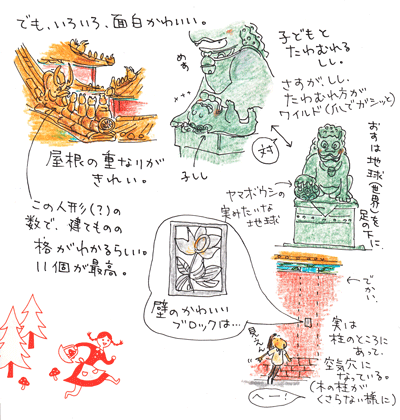 でも、いろいろ、面白かわいい。
子どもと
たわむれる
しし。
めす
さすが、しし。
たわむれ方が
ワイルド(爪でガシッと)
屋根の重なりが
きれい。
子しし
対
おすは地球(世界)を
足の下に。
ヤマボウシの
実みたいな
地球
この人形(?)の
数で、建てものの
格がわかるらしい。
11個が最高。
壁のかわいい
ブロックは…
でかい。
見えん
実は
柱のところに
あって、
空気穴に
なっている。
(木の柱が
くさらない様に)
へー!